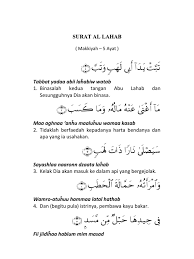 SURAT AL LAHAB
( Makkiyah – 5 Ayat )
تَبَّتْ يَدَا أَبِي لَهَبٍ وَتَبَّ ﴿١﴾
Tabbat yadaa abii lahabiw watab
1. Binasalah kedua tangan Abu Lahab dan
Sesungguhnya Dia akan binasa.
مَا أَغْنَى عَنْهُ مَالُهُ وَمَا كَسَبَ ﴿٢﴾
Maa aghnaa 'anhu maaluhuu wamaa kasab
2. Tidaklah berfaedah kepadanya harta bendanya dan
apa yang ia usahakan.
سَيَصْلَى نَارًا ذَاتَ لَهَبٍ ﴿٣﴾
Sayashlaa naaron daata lahab
3. Kelak Dia akan masuk ke dalam api yang bergejolak.
وَامْرَأَتُهُ حَمَّالَةَ الْحَطَبِ ﴿٤﴾
Wamro-atuhuu hammaa latal hathab
4. Dan (begitu pula) istrinya, pembawa kayu bakar.
فِي جِيدِهَا حَبْلٌ مِنْ مَسَدٍ ﴿٥﴾
Fii jiidhaa hablum mim masad